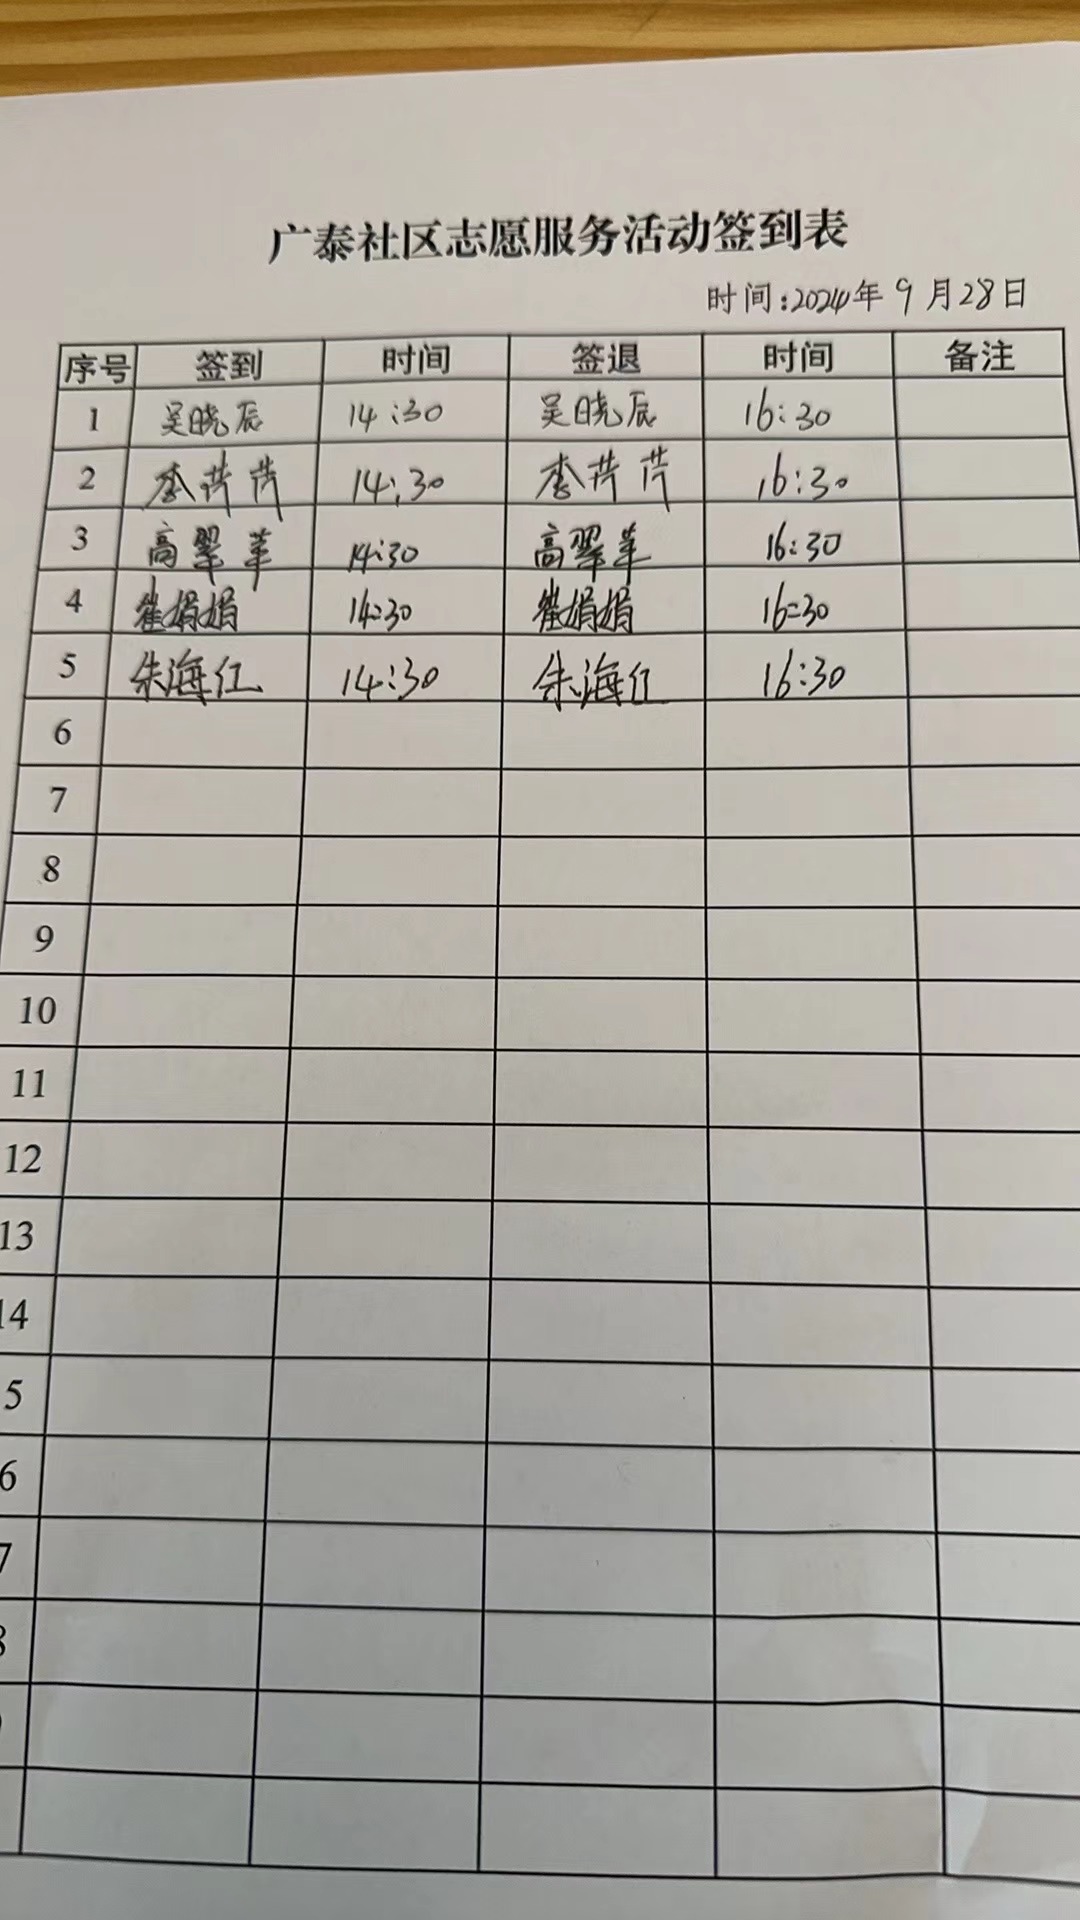 广泰社区志愿服务活动签到表
时间:2024年9月28日
序号 签到 时间 签退 时间 备注
1 吴晓辰 14:30 吴晓辰 16:30
2 李芹芹 14:30 李芹芹 16:30
3 高翠苹 14:30 高翠苹 16:30
4 崔娟娟 14:30 崔娟娟 16:30
5 朱海红 14:30 朱海红 16:30
6
7
8
9
10
11
12
13
14
5
6
7
8